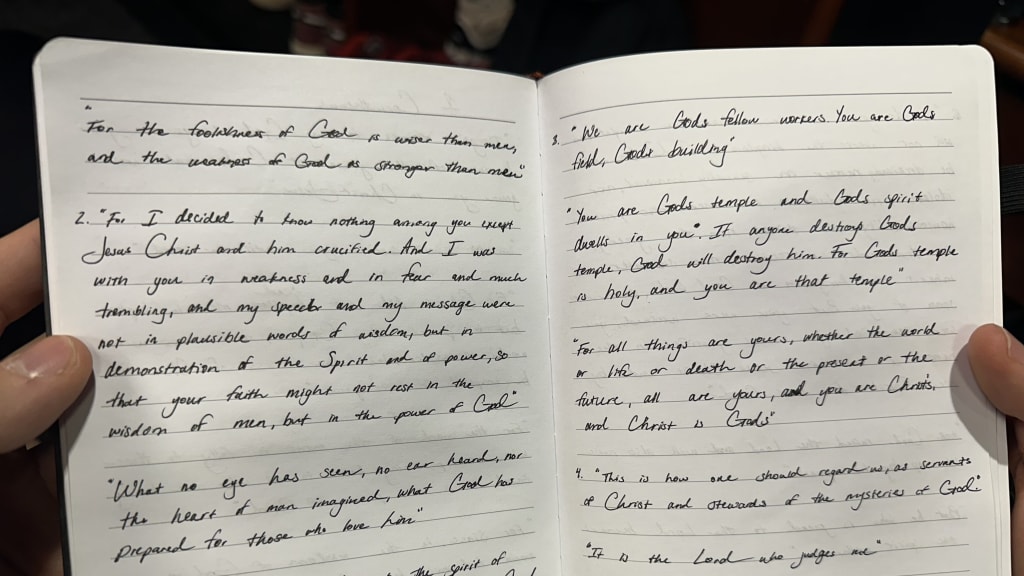 "
For the foolishness of God is wiser than men,
and the weakness of God is stronger than men"
2. "For I decided to know nothing among you except
Jesus Christ and him crucified. And I was
with you in weakness and in fear and much
trembling, and my speech and my message were
not in plausible words of wisdom, but in
demonstration of the Spirit and of power, so
that your faith might not rest in the
wisdom of men, but in the power of God"
"What no eye has seen, no ear heard, nor
the heart of man imagined, what God has
prepared for those who love him"
the spirit of
God
3. "We are Gods fellow workers. You are Gods
field, Gods building"
"You are Gods temple and Gods spirit
dwells in you". If anyone destroys Gods
temple, God will destroy him. For Gods temple
is holy, and you are that temple"
"For all things are yours, whether the world
or life or death or the present or the
future, all are yours, and you are Christ's,
and Christ is Gods"
4. "This is how one should regard us, as servants
of Christ and stewards of the mysteries of God."
"It is the Lord who judges me"